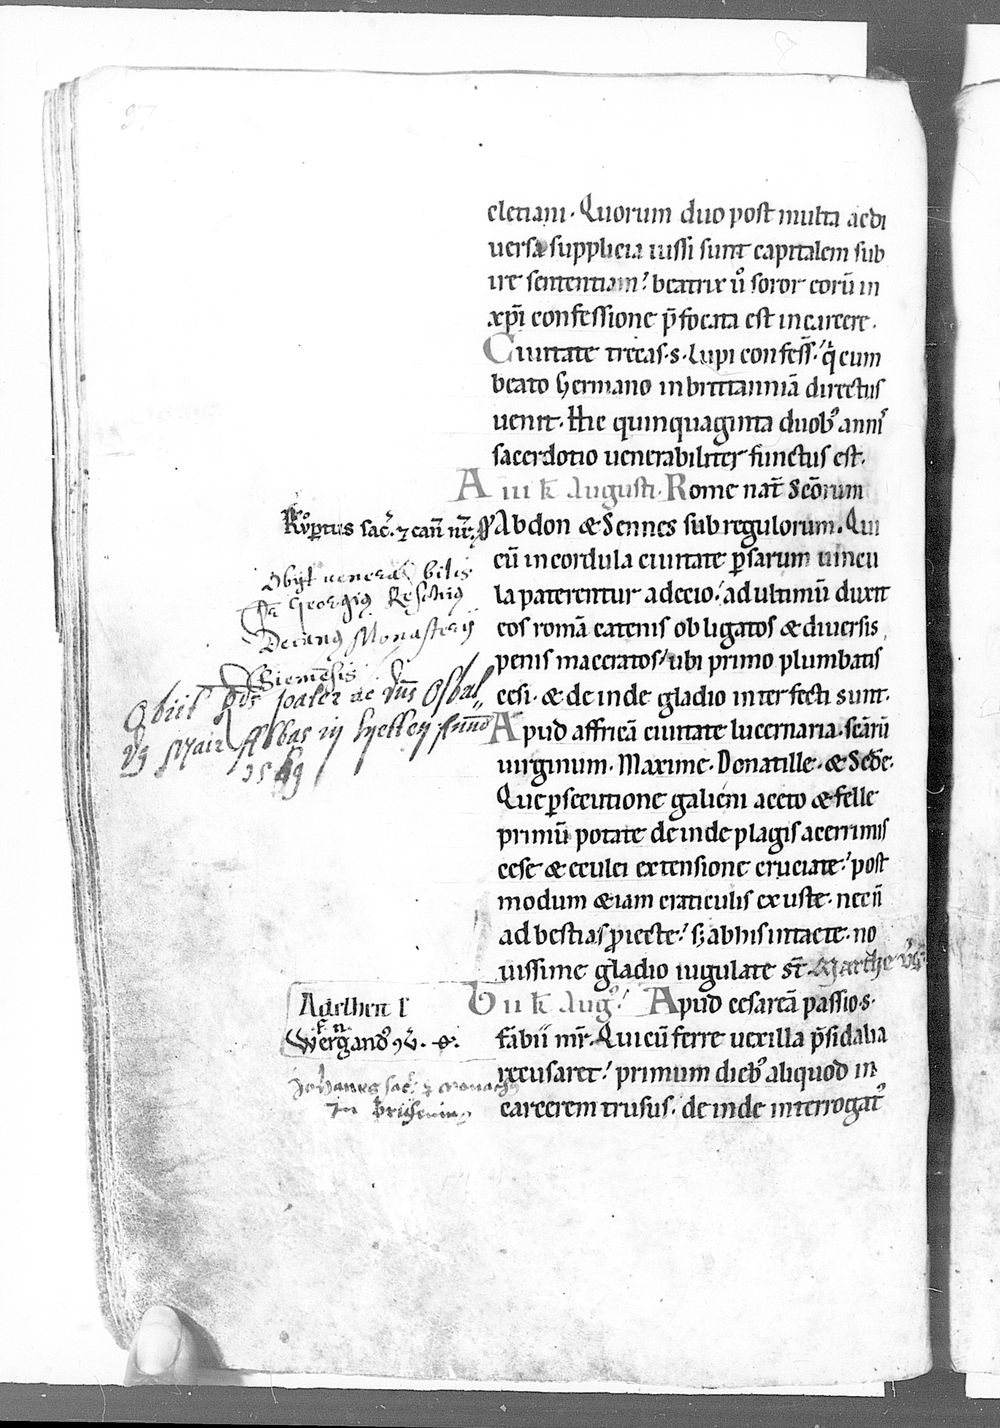 97
cletiani. Quorum duo post multa ac di
uersa supplicia iussi sunt capitalem sub
ire sententiam: beatrix ů soror eorũ in
xp̃i confessione p̃focata est in carcere.
Ciuitate trecas. s. Lupi confess̃. q̇ cum
beato Germano in brittanniã directus
uenit. Hic quinquaginta duobꝰ annis
sacerdotio uenerabiliter functus est.
A iii k̃ Augusti. Rome nat̃ Sc̃orum
Abdon & Sennes subregulorum. Qui
cũ in cordula ciuitate ꝑsarum uincu
la paterentur a decio: ad ultimũ duxit
eos romã catenis obligatos & diuersis
penis maceratos: ubi primo plumbatis
cesi. & deinde gladio interfecti sunt.
Apud affricã ciuitate lucernaria. sc̃arũ
uirginum. Maxime. Donatille. & Sc̃de.
Que ꝑsecutione galieni aceto & felle
primũ potate deinde plagis acerrimis
cese & eculei extensione cruciate: post
modum & iam craticulis exuste. necñ
ad bestias ꝓiecte: sꝫ ab his intacte. no
uissime gladio iugulate st̃. Marthe
B ii k̃ Augꝰ. Apud cesareã passio. s.
fabii mr̃. Qui cũ ferre uexilla p̃sidalia
recusaret: primum diebꝰ aliquod in
carcerem trusus. deinde interrogatꝰ
Růptus sac̃. ⁊ can̄ nr̃.
Obijt venera bilis
Fr Georgiꝰ Reschiꝰ
Decanꝰ Monasterij
Obiit Rds pater ac dñs Osbal„
dꝰ Mair Abbas in
Adelheit l
Johanes sac̃. ⁊ monachꝰ
In